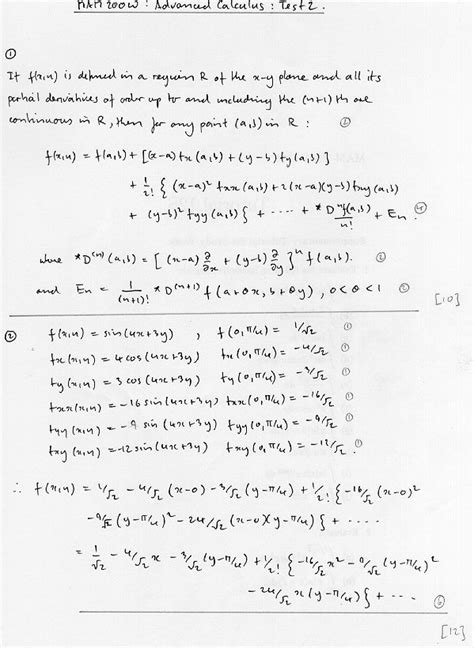 MAM200W : Advanced Calculus : Test 2.
①
If f(x,y) is defined in a region R of the x-y plane and all its
partial derivatives of order up to and including the (n+1)th are
continuous in R, then for any point (a,b) in R :
f(x,y) = f(a,b) + [(x-a)fx(a,b) + (y-b)fy(a,b)]
+ 1/2! { (x-a)² fxx(a,b) + 2(x-a)(y-b)fxy(a,b)
+ (y-b)² fyy(a,b) } + ---- + *Dⁿf(a,b)/n! + En. ④
where *D⁽ⁿ⁾(a,b) = [ (x-a) ∂/∂x + (y-b) ∂/∂y ]ⁿ f(a,b).
and En = 1/(n+1)! *D⁽ⁿ⁺¹⁾ f(a+θx, b+θy) , 0<θ<1
[10]
② f(x,y) = sin(4x+3y) , f(0,π/4) = 1/√2 ①
fx(x,y) = 4 cos(4x+3y) fx(0,π/4) = -4/√2 ①
fy(x,y) = 3 cos(4x+3y) fy(0,π/4) = -3/√2 ①
fxx(x,y) = -16 sin(4x+3y) fxx(0,π/4) = -16/√2 ①
fyy(x,y) = -9 sin(4x+3y) fyy(0,π/4) = -9/√2 ①
fxy(x,y) = -12 sin(4x+3y) fxy(0,π/4) = -12/√2. ①
∴ f(x,y) = 1/√2 - 4/√2 (x-0) - 3/√2 (y-π/4) + 1/2! { -16/√2 (x-0)²
-9/√2 (y-π/4)² - 24/√2 (x-0)(y-π/4) } + ----
= 1/√2 - 4/√2 x - 3/√2 (y-π/4) + 1/2! { -16/√2 x² - 9/√2 (y-π/4)²
- 24/√2 x(y-π/4) } + --- ⑥
[12]